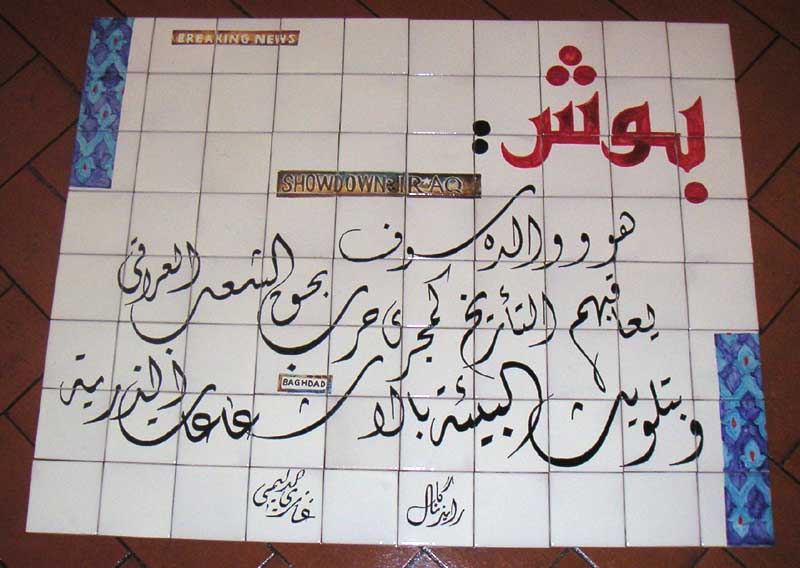 BREAKING NEWS
بوش :
SHOWDOWN: IRAQ
هو ووالده سوف
يعاقبهم التأريخ كمجرمي حرب بحق الشعب العراقي
BAGHDAD
وبتلويث البيئة بالاشعاعات الذرية
غازي الدليمي